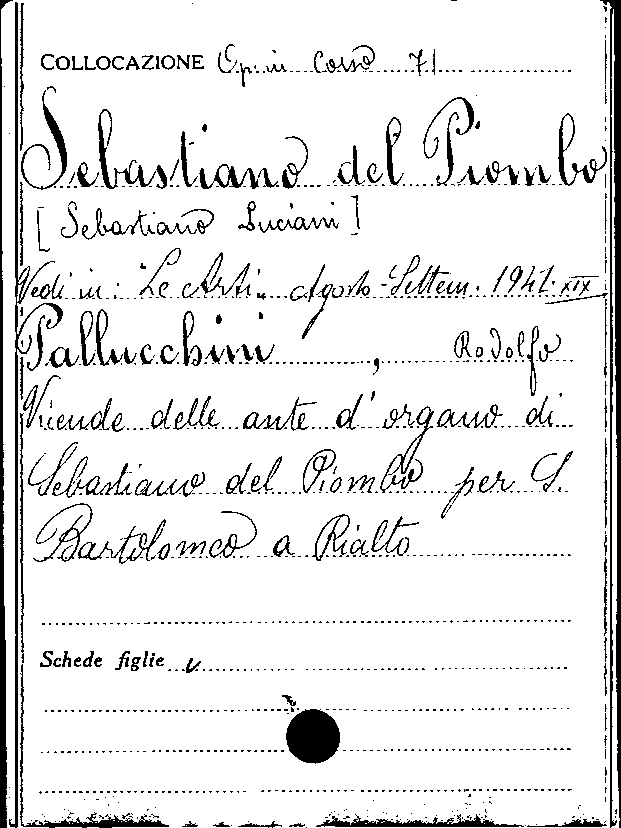 COLLOCAZIONE Op. in Corso 71
Sebastiano del Piombo
[Sebastiano Luciani]
Vedi in: "Le Arti" Agosto-Settem. 1941-XIX
Pallucchini, Rodolfo
Vicende delle ante d'organo di
Sebastiano del Piombo per S.
Bartolomeo a Rialto
Schede figlie v